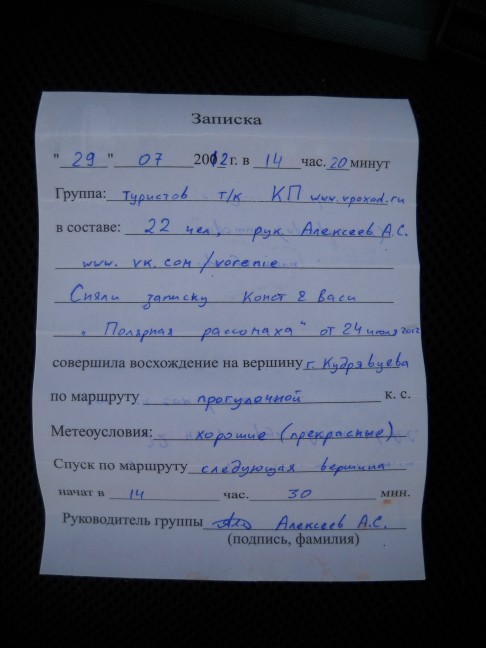 Записка
"29" 07 2012г. в 14 час. 20 минут
Группа: туристов т/к КП www.vpoxod.ru
в составе: 22 чел, рук Алексеев А.С.
www. vk. com / vorenie
Сняли записку Конст & Васи
„ Полярная рассомаха" от 24 июля 2012
совершила восхождение на вершину г. Кудрявцева
по маршруту прогулочной к. с.
Метеоусловия: хорошие (прекрасные)
Спуск по маршруту следующая вершина
начат в 14 час. 30 мин.
Руководитель группы Алексеев А.С.
(подпись, фамилия)